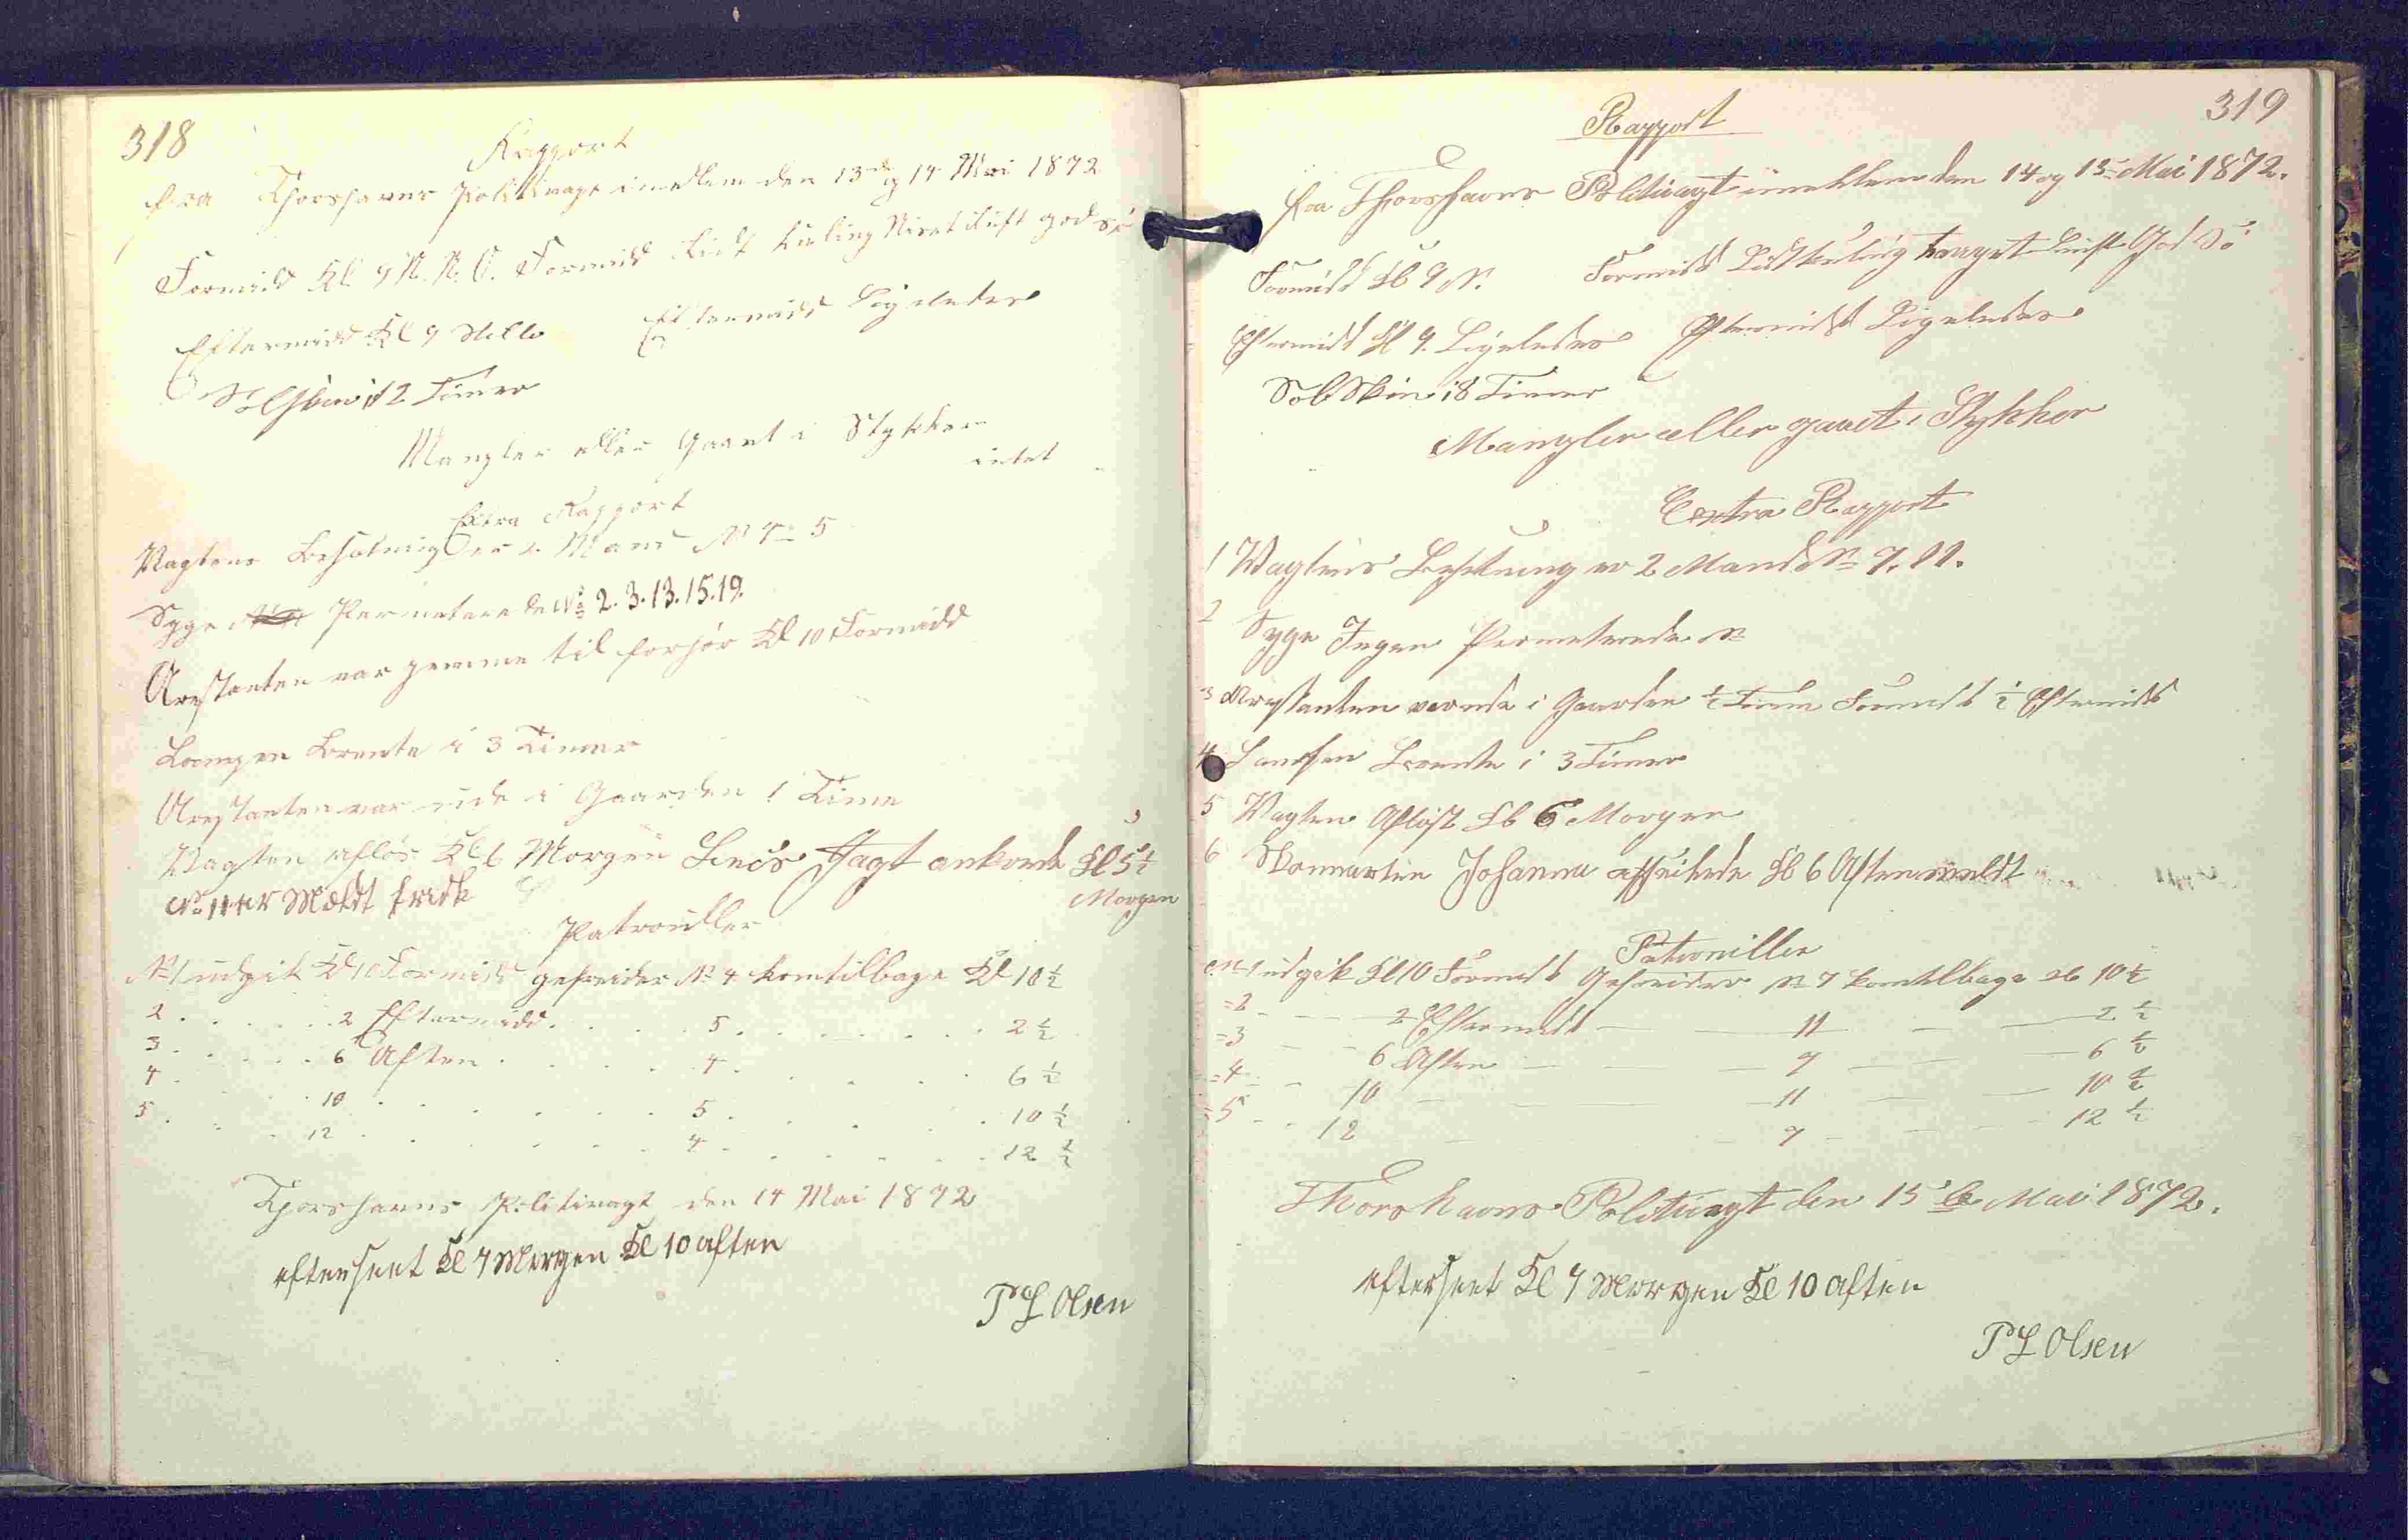 318
Rapport
fra Thorshavns Politivagt imellem den 13de og 14 Mai 1872
Formidd Kl 9 N. N. O. Formidd Lidt Kuling Luft god Sö
Eftermidd Kl 9 Stille Eftermidd Ligeledes
Solskin i 12 Timer
Mangler eller Gaaet i Stykker
intet
Extra Rapport
Vagtens Besætning er 2 Mand No 4 = 5
Syge Permeterede No 2. 3. 13. 15. 19.
Arestanten var til forhør Kl 10 Formidd
Lampen Brente i 3 Timer
Arestanten var ude i Gaarden 1 Time
Vagten afløs Kl 6 Morgen Jagt ankom Kl 5½
Morgen
No 11 er Meldt frisk
Patrouller
No 1 udgik Kl 10 Formidd gefreider No 4 kom tilbage Kl 10½
2 . . . . . 2 Eftermidd . . . . 5 . . . . . . . 2½
3 . . . . . 6 Aften . . . . . 4 . . . . . 6½
4 . . . 10 . . . . . . 5 . . . . . 10½
5 . . . 12 . . . . . . 4 . . . . . . 12½
Thorshavns Politivagt den 14 Mai 1872
efterseet Kl 7 Morgen Kl 10 aften
P L Olsen
319
Rapport
fra Thorshavns Politivagt imellem den 14 og 15 Mai 1872.
Formidd Kl 9 N. Formidd Lidt kuling Luft God Sö
Eftermidd Kl 9. Ligeledes Eftermidd Ligeledes
Sol Skin i 8 Timer
Mangler eller gaaet i Stykker
Extra Rapport
1 Vagtens Besetning er 2 Mand No 7. 11.
2 Syge Ingen Permeterede No
3 Arestanten var ude i Gaarden ½ Time Formidd ½ Eftermidd
4 Lampen Brente i 3 Timer
5 Vagten Afløst Kl 6 Morgen
6 Skonnerten Johanna afseilede Kl 6 Aften
Patrouiller
No 1 udgik Kl 10 Formidd Gefreider No 7 kom tilbage Kl 10½
=2 - - - 2 Eftermidd - - 11 - - 2½
=3 - - 6 Aften - - 7 - - 6½
=4 - - 10 - - 11 - - 10½
=5 - - 12 - - 7 - - - 12½
Thorshavns Politivagt den 15 de Mai 1872.
efterseet Kl 7 Morgen Kl 10 aften
P L Olsen